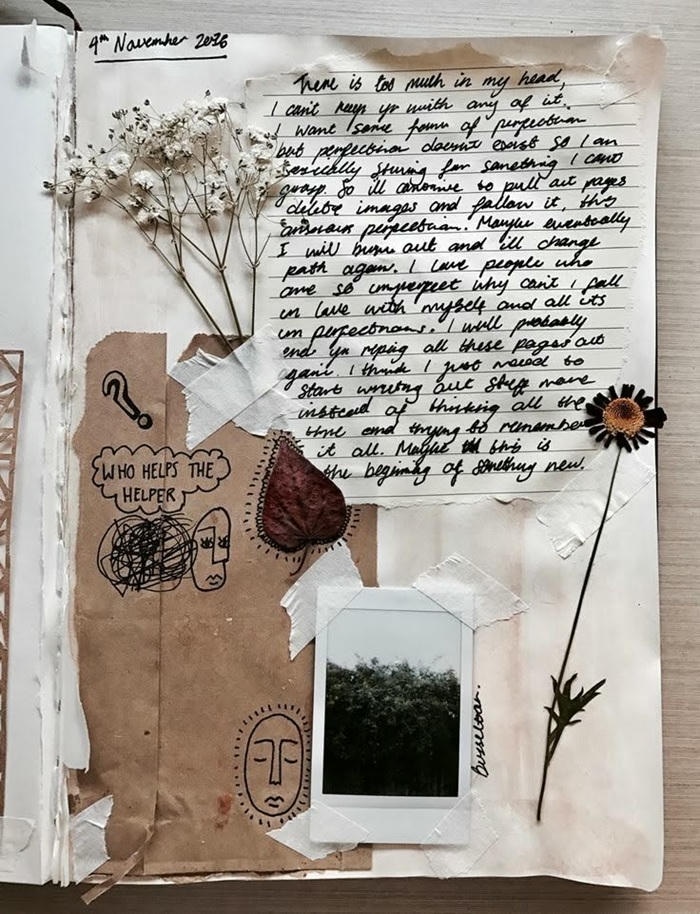 4th November 2016
There is too much in my head,
I can't keep up with any of it.
I want some form of perfection
but perfection doesnt exist so I am
basically striving for something I cant
grasp. So ill continue to pull out pages
delete images and follow it, this
perfection. Maybe eventually
I will burn out and ill change
path again. I love people who
are so imperfect why can't I fall
in love with myself and all its
imperfections. I will probably
end up riping all these pages out
again. I think I just need to
start writing out stuff more
instead of thinking all the
time and trying to remember
it all. Maybe this is
the begining of something new.
?
WHO HELPS THE
HELPER